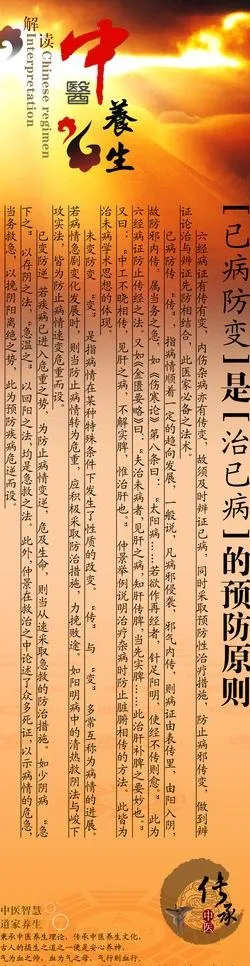 解读
Chinese regimen
Interpretation
中
醫
養生
【已病防变】是【治已病】的预防原则
六经病证有传有变，内伤杂病亦有传变，故须及时辨证已病，同时采取预防性治疗措施，防止病邪传变，做到辨
证论治与辨证先防相结合，此医家必备之法术。
已病防传 “传”，指病情顺着一定的趋向发展，一般说，凡病邪侵袭，邪气内传，则病证由表传里，由阳入阴，
故防邪内传，属当务之急，如《伤寒论》第八条曰：“太阳病……若欲作再经者，针足阳明，使经不传则愈。”此为
六经病证防止传经之法。又如《金匮要略》曰：“夫治未病者，见肝之病，知肝传脾，当先实脾……此治肝补脾之要妙也。”
又曰：“中工不晓相传，见肝之病，不解实脾，惟治肝也。”仲景举例说明治疗杂病时防止脏腑相传的方法。此皆为
治未病学术思想的体现。
未变防变 “变”是指病情在某种特殊条件下发生了性质的改变。“传”与“变”多常互称为病情的进展。
若病情急剧变化发展时，则当防止病情转为危重，应积极采取防治措施，力挽败途，如阳明病中的清热救阴法与峻下
攻实法，皆为防止病情速变危重而设。
已变防逆 若疾病已进入危重之势，为防止病情变逆，危及生命，则当从速采取急救的防治措施。如少阴病“急
下之”以存阴之法，“急温之”以回阳之法，均是急救之法。此外，仲景在救治之中论述了众多死证，以示病情的危急，
当务救急，以挽阴阳离绝之势，此为预防疾病危逆而设。
传承
中医
中医智慧
道家养生
秉承中医养生理论，传承中医养生文化，
古人的摄生之道之一便是安心养神，
气为血之帅，血为气之母，气行则血行，